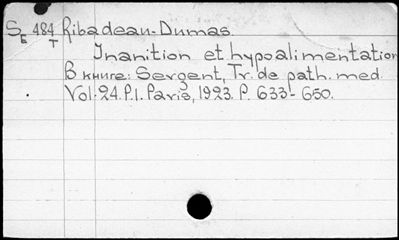 SE 484 T Ribadeau-Dumas.
Inanition et hypoalimentation
В книге: Sergent, Tr. de path. med.
Vol. 24. P. I. Paris, 1923. P. 633-650.